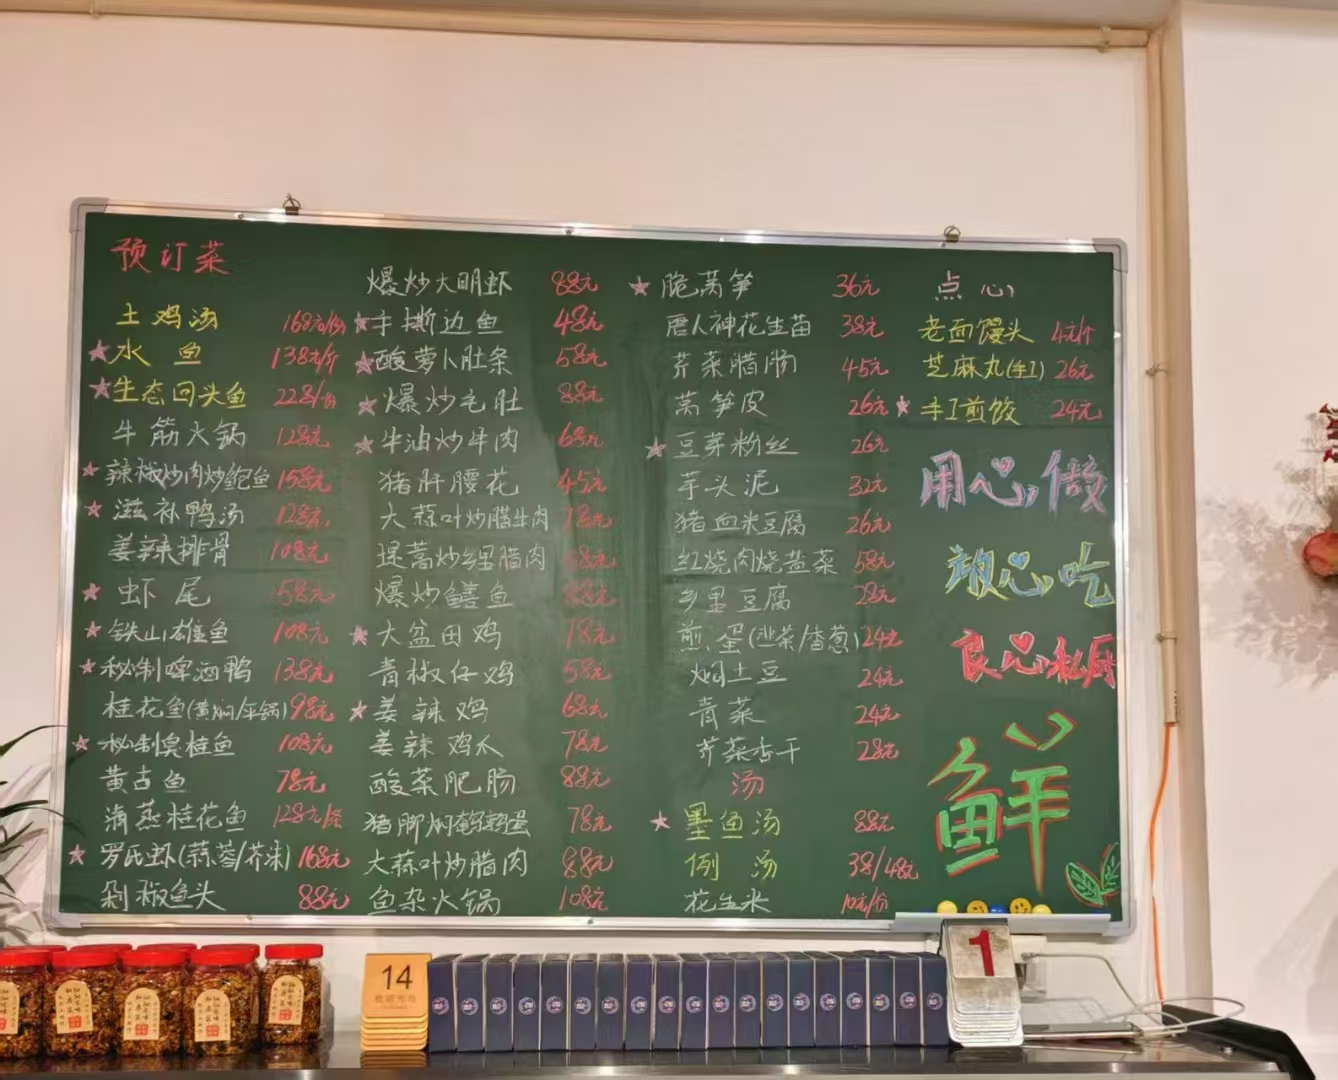 预订菜
土鸡汤 168元/份
★水鱼 138元/斤
★生态回头鱼 228/份
牛筋火锅 128元
★辣椒炒肉炒鲍鱼 158元
★滋补鸭汤 128元
姜辣排骨 108元
★虾尾 58元
★铁山雄鱼 108元
★秘制啤酒鸭 138元
桂花鱼(黄焖/平锅) 98元
★秘制臭桂鱼 108元
黄古鱼 78元
清蒸桂花鱼 128元/条
★罗氏虾(蒜蓉/芥末) 168元
剁椒鱼头 88元
爆炒大明虾 88元
★手撕边鱼 48元
★酸萝卜肚条 58元
★爆炒毛肚 88元
★牛油炒牛肉 68元
猪肝腰花 45元
大蒜叶炒腊牛肉 78元
堤蒿炒乡里腊肉
爆炒鳝鱼 88元
★大盆田鸡
青椒仔鸡 58元
★姜辣鸡 68元
姜辣鸡爪 78元
酸菜肥肠 88元
猪脚焖鹌鹑蛋 78元
大蒜叶炒腊肉 88元
鱼杂火锅 108元
★脆莴笋 36元
唐人神花生苗 38元
芹菜腊肠 45元
莴笋皮 26元
★豆芽粉丝 26元
芋头泥 32元
猪血米豆腐 26元
红烧肉烧盐菜 58元
乡里豆腐 28元
煎蛋(韭菜/香葱) 24元
焖土豆 24元
青菜 24元
芹菜香干 28元
汤
★墨鱼汤 88元
例汤 38/48元
花生米 10元/份
点心
老面馒头 4元/个
芝麻丸(手工) 26元
★手工煎饺 24元
用心做
放心吃
良心私厨
鲜
14
1